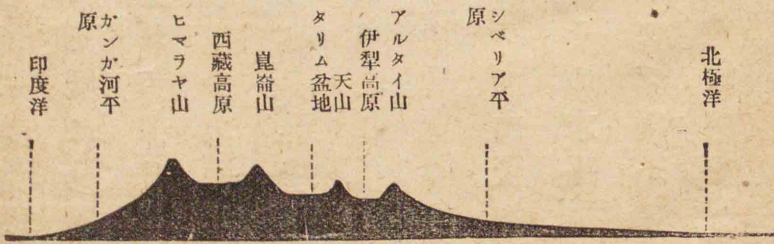 北極洋
シベリア平
原
アルタイ山
伊犁高原
天山
タリム盆地
崑崙山
西藏高原
ヒマラヤ山
ガンガ河平
原
印度洋